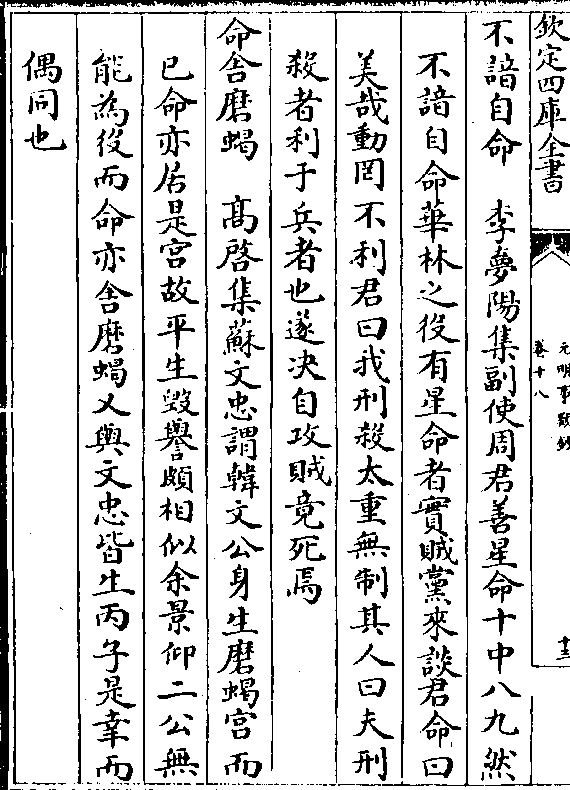 欽定四庫全書
元明事類鈔
卷十八
十三
不諳自命　李夢陽集副使周君善星命十中八九然
不諳自命華林之役有星命者實賊黨來談君命曰
美哉動罔不利君曰我刑殺太重無制其人曰夫刑
殺者利于兵者也遂决自攻賊竟死焉
命舍磨蝎　髙啓集蘇文忠謂韓文公身生磨蝎宫而
已命亦居是宫故平生毁譽頗相似余景仰二公無
能為役而命亦舍磨蝎乂與文忠皆生丙子是幸而
偶同也